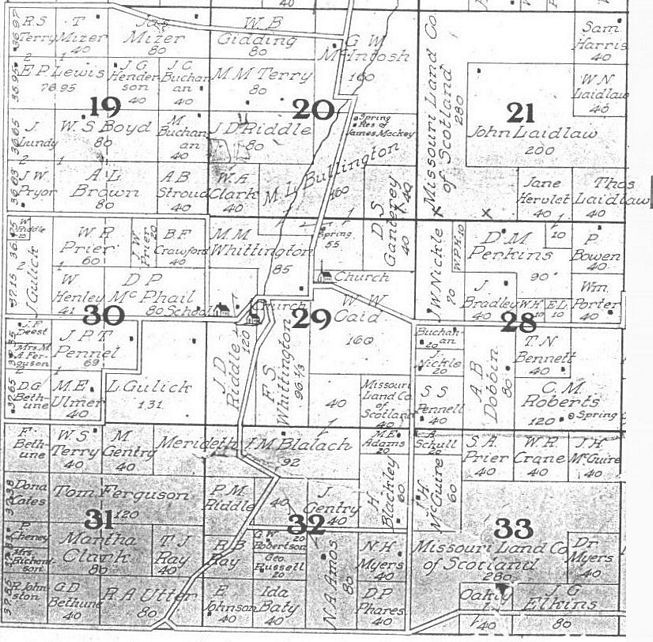 40
R.S. Terry
T Mizer
40
Jas Mizer
80
W.B. Gidding
80
G W McIntosh
160
Missouri Land Co of Scotland
280
Sam Harris
40
E P Lewis
76 95
J G Henderson
40
J C Buchanan
40
M M Terry
80
W N Laidlaw
40
19
20
21
J Lundy
W. S Boyd
80
M Buchanan
40
J D Riddle
80
Spring
Res of James Mackey
John Laidlaw
200
J W Pryor
A L Brown
80
A B Stroud
40
W A Clark
40
M L Bullington
160
D S Ganterey
40
Jane Hervlet
40
Thos Laidlaw
40
J Gulick
W R Prier
60
J W Prier
20
B F Crawford
40
M M Whittington
85
Spring
55
J W Nickle
70
W P K 10
D M Perkins
90
10
P Bowen
40
W Henley
41
D P McPhail
80
School
Church
Church
W W Caid
160
J Bradley
40
W H
10
E L
10
Wm Porter
40
30
29
28
J P T Pennel
69
J D Riddle
120
F S Whittington
96 1/3
Buchanan
20
J Nickle
20
T N Bennett
40
D G Bethune
M E Ulmer
40
L Gulick
131
40
Missouri Land Co of Scotland
40
S S Pennell
40
A B Dobbin
80
C. M. Roberts
120
Spring
F Bethune
W S Terry
40
M Gentry
40
Merideth
F M Blalach
92
M E Adams
20
Schull
20
S A Prier
40
W R Crane
40
J H McGuire
40
Dona Yates
Tom Ferguson
120
P M Riddle
40
J Gentry
40
H Blackley
60
J H McGuire
60
31
32
33
P Cheney
Mrs Richardson
Martha Clark
80
T J Ray
40
R B Ray
G W Robertson
20
Geo Russell
20
N A Amos
80
N H Myers
40
Missouri Land Co of Scotland
280
Dr Myers
40
R Johnston
G D Bethune
40
R A Utter
80
E Johnson
40
Ida Baty
40
D P Phares
40
Oakly
40
J G Elkins
80